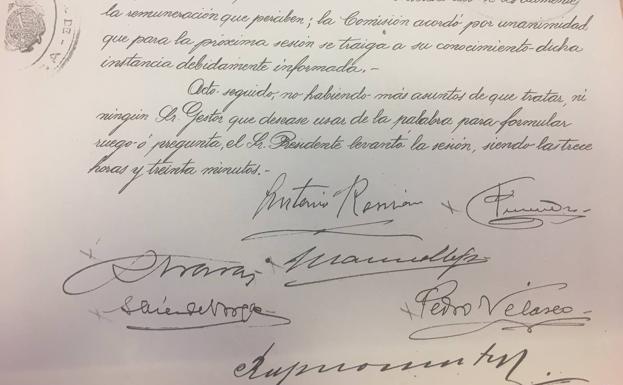 la remuneración que perciben; la Comisión acordó por unanimidad
que para la próxima sesión se traiga a su conocimiento dicha
instancia debidamente informada.-
Acto seguido, no habiendo más asuntos de que tratar, ni
ningún Sr. Gestor que desease usar de la palabra para formular
ruego ó pregunta, el Sr. Presidente levantó la sesión, siendo las trece
horas y treinta minutos.-
Antonio
Pedro Velasco